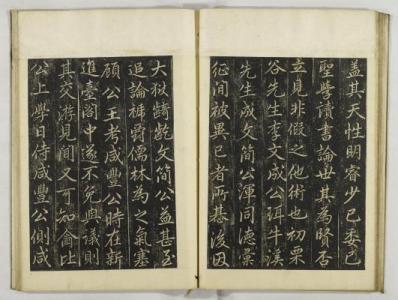 盖其天性明睿少已委己
聖學讀書論世其為賢否
立見非假之他術也初栗
谷先生李文成公珥牛溪
先生成文簡公渾同德
間被異己者所惎後因
大獄齮齕文簡公益甚至
追論褫爵儒林為之氣塞
顧公王考咸豐公時在新
進臺閣中遂不免與議則
其交游見聞又可知侖比
公上學日侍咸豐公側咸